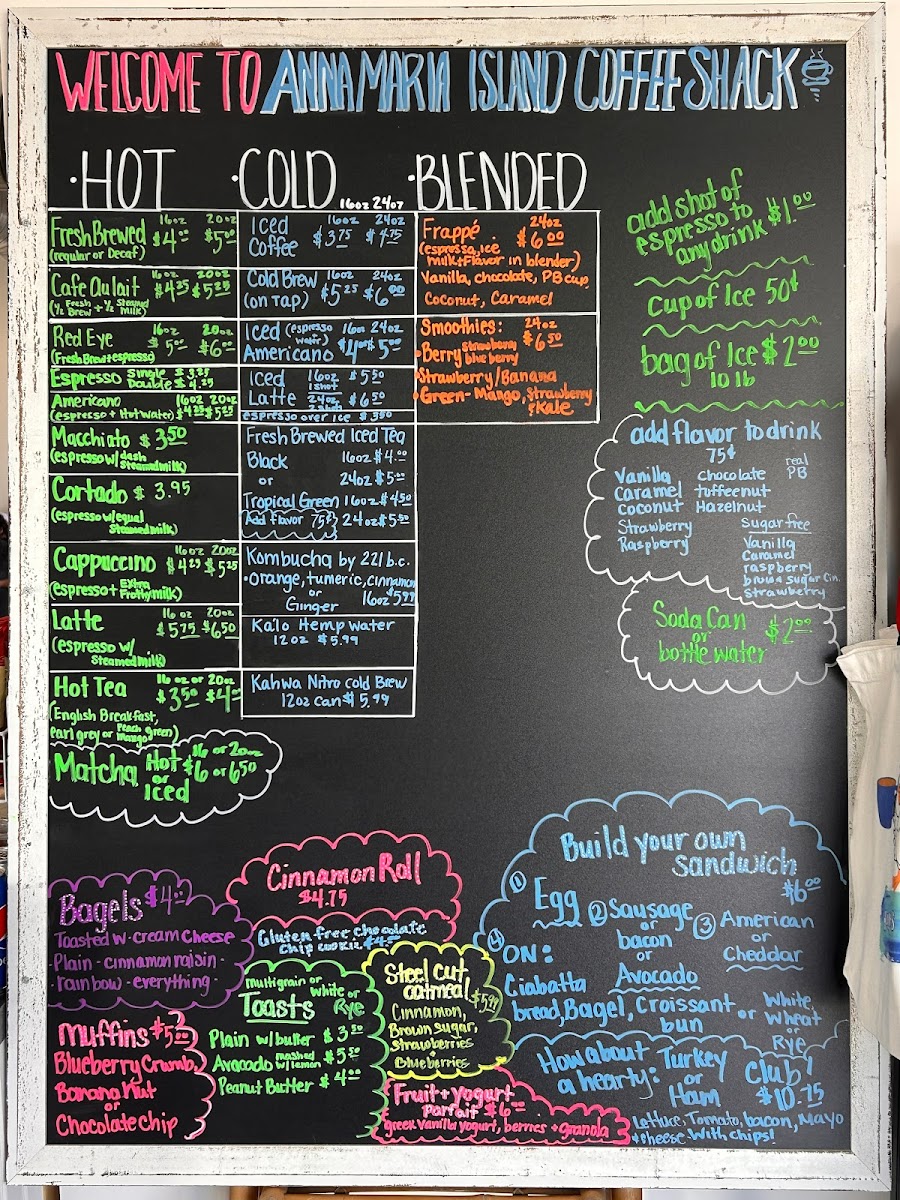 WELCOME TO ANNA MARIA ISLAND COFFEE SHACK
·HOT
16oz 20oz
Fresh Brewed $4.00 $5.00
(regular or Decaf)
16oz 20oz
Cafe Au lait $4.25 $5.25
(½ Fresh Brew + ½ Steamed milk)
16oz 20oz
Red Eye $5.00 $6.00
(Fresh Brew+espresso)
Espresso Single $3.25
Double $4.25
Americano 16oz 20oz
(espresso + Hot water) $4.25 $5.25
Macchiato $3.50
(espresso w/ dash
Steamed milk)
Cortado $3.95
(espresso w/equal
Steamed milk)
16oz 20oz
Cappuccino $4.25 $5.25
(espresso + Extra
Frothy milk)
16oz 20oz
Latte $5.75 $6.50
(espresso w/
Steamed milk)
16oz or 20oz
Hot Tea $3.50 $4.00
(English Breakfast,
earl grey or Peach Mango green)
Matcha Hot 16 or 20oz
or $6 or 6.50
Iced
·COLD
16oz 24oz
Iced 16oz 24oz
Coffee $3.75 $4.75
Cold Brew 16oz 24oz
(on Tap) $5.25 $6.00
Iced (espresso + water) 16oz 24oz
Americano $4.00 $5.00
Iced 16oz 1 shot $5.50
Latte 24oz 2 shot $6.50
espresso over ice $3.50
Fresh Brewed Iced Tea
Black 16oz $4.00
or 24oz $5.00
Tropical Green 16oz $4.50
Add flavor 75¢ 24oz $5.50
Kombucha by 221 b.c.
·Orange, tumeric, cinnamon
or
Ginger 16oz $5.99
Kalo Hemp water
12oz $5.99
Kahwa Nitro cold Brew
12oz can $5.99
·BLENDED
24oz
Frappé $6.00
(espresso, ice
milk+flavor in blender)
Vanilla, chocolate, PB cup,
Coconut, Caramel
Smoothies: 24oz
$6.50
·Berry Strawberry
blueberry
·Strawberry/Banana
·Green-Mango, Strawberry
& Kale
add shot of
espresso to $1.00
any drink
Cup of Ice 50¢
bag of Ice $2.00
10 lb
add flavor to drink
75¢
Vanilla Chocolate real PB
Caramel toffeenut
Coconut Hazelnut
Strawberry
Raspberry
Sugar free
Vanilla
Caramel
raspberry
brown sugar Cin.
Strawberry
Soda Can
or $2.00
bottle water
Bagels $4.00
Toasted w. cream cheese
Plain - cinnamon raisin -
·rainbow - everything·
Muffins $5.25
Blueberry Crumb,
Banana Nut
or
Chocolate chip
Cinnamon Roll
$4.75
Gluten free chocolate
chip cookie $4.00
multigrain or White or
Toasts Rye
Plain w/butter $3.50
Avocado mashed w/lemon $5.50
Peanut Butter $4.00
Steel cut
oatmeal $5.99
Cinnamon,
Brown sugar,
Strawberries
+
Blueberries
Fruit + yogurt
Parfait $6.00
greek vanilla yogurt, berries + granola
Build your own
sandwich
$6.00
① Egg ② Sausage
or
bacon
or
Avocado
③ American
or
Cheddar
④ ON:
Ciabatta
bread, Bagel, Croissant or White
bun Wheat
or
Rye
How about
a hearty: Turkey
or
Ham
Club!
$10.75
Lettuce, Tomato, bacon, Mayo
+cheese With chips!